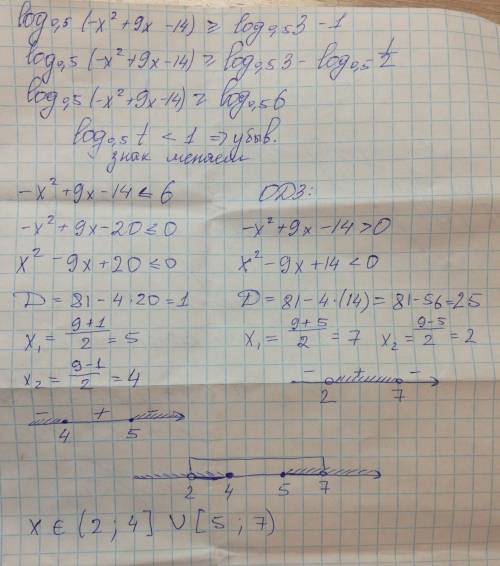 log₀,₅(-x²+9x-14) ≥ log₀,₅3 - 1
log₀,₅(-x²+9x-14) ≥ log₀,₅3 - log₀,₅ 1/2
log₀,₅(-x²+9x-14) ≥ log₀,₅6
log₀,₅ t < 1 ⇒ убыв.
знак меняем
-x²+9x-14 ≤ 6
-x²+9x-20 ≤ 0
x²-9x+20 ≤ 0
D = 81-4·20 = 1
x₁ = (9+1)/2 = 5
x₂ = (9-1)/2 = 4
- + -
4 5
ОДЗ:
-x²+9x-14 > 0
x²-9x+14 < 0
D = 81-4·(14) = 81-56 = 25
x₁ = (9+5)/2 = 7 x₂ = (9-5)/2 = 2
- + -
2 7
2 4 5 7
x ∈ (2; 4] ∪ [5; 7)